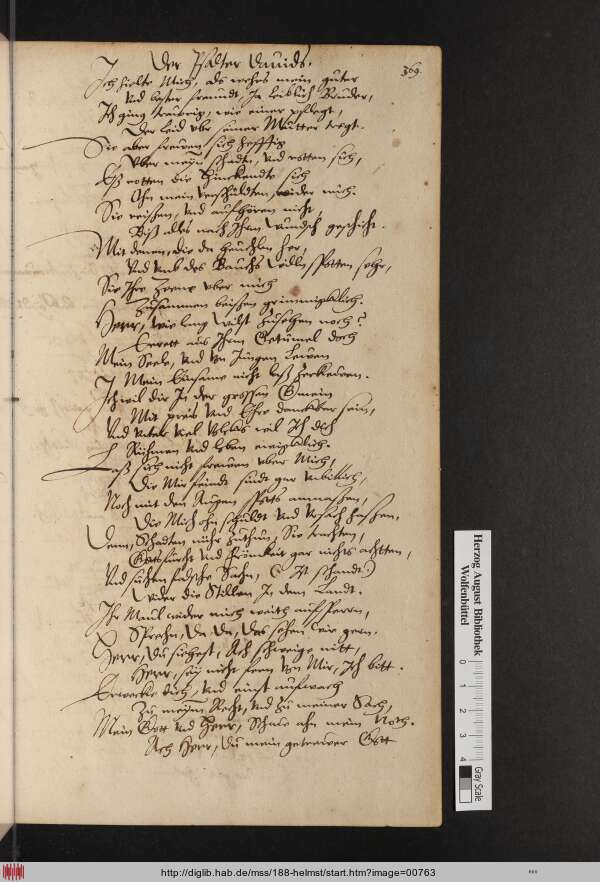 Der Psalter Dauids.
369.
Ich hielte Mich, als wehrs mein guter
Vnd bester freundt Ja leiblich Bruder,
Ich ging traurig, wie einer pflegt,
Der leid vbr seiner Mutter tregt.
Sie aber frewen sich hefftig
Vber meyn schadn, vnd rotten sich,
Eß rotten die Hinckende sich
Ohn mein verschuldten, wider mich.
Sie reissen, vnd aufhören nicht,
Biß alles nach Ihem wundsch geschicht.
Mit denen, die da heuchlen sehr,
Vnd vmb des Bauchs willn spotten sehr,
Sie Ihr Zeene vber mich
Zusammen beissen grimmigklich.
Herr, wie lang wilst zusehen noch?
Errett aus Ihem Getümel doch
Mein Seele, vnd von Jungen Lewen
Mein Einsame nicht laß
Ich wil dir In der grossen Gmein
Mit preis vnd Ehre danckbar sein,
Vnd vnter viel Volcks wil Ich dich
Rühmen vnd loben ewigklich.
Laß sich nicht frewen vber Mich,
Die Mir feindt sindt gar vnbillich,
Noch mit den Augen spots anmassen,
Die Mich ohn schuldt vnd vrsach hassen,
Denn, schadten mihr zuthun, Sie trachten,
Gottsfurcht vnd frömkeit gar nichts achtten,
Vnd suchen falsche Sachn, (Ist schandt)
Wider die Stillen In dem Landt.
Ihr Maul wider mich weith auffsperrn,
Sprechn, Da Da, das sehen wir gern.
Herr, du siehest, Ach schweige nitt,
Herr, sey nicht fern von Mir, Ich bitt.
Erwecke dich, vnd einst aufwach
Zu meym Recht, vnd zu meiner Sach,
Mein Gott vnd Herr, Schaw ahn mein Noth.
Ach Herr, du mein getrewer Gott
Herzog August Bibliothek
Wolfenbüttel
0 1 2 3 4
Gray Scale
http://diglib.hab.de/mss/188-helmst/start.htm?image=00763